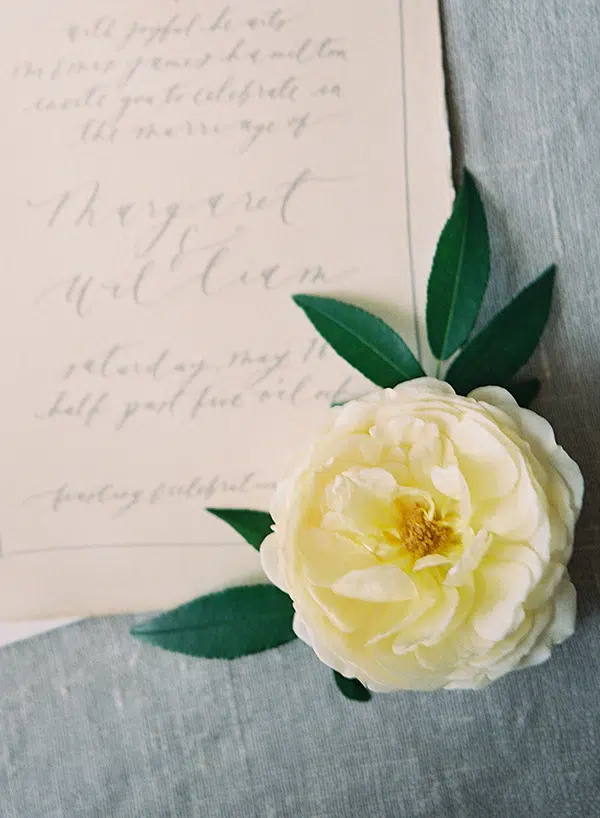 with joyful hearts
mr & mrs james hamilton
invite you to celebrate in
the marriage of
Margaret
&
William
saturday, may
half past five o'clock
feasting & celebration